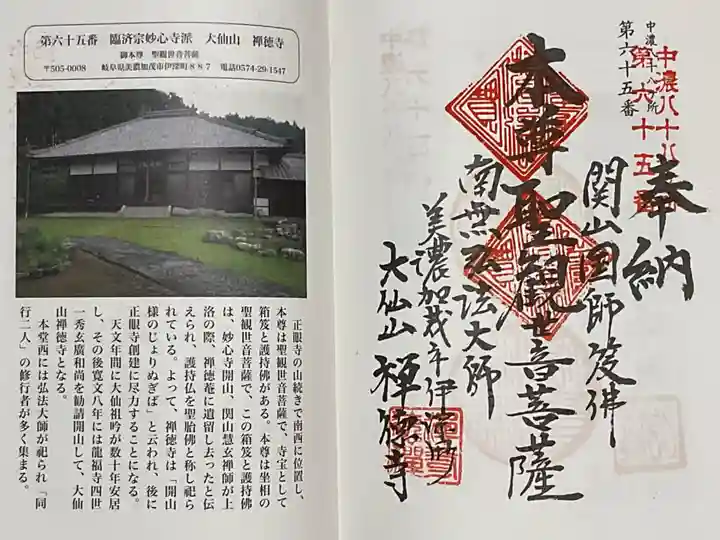 第六十五番　臨済宗妙心寺派　大仙山　禅徳寺
御本尊　聖観世音菩薩
〒505-0008　岐阜県美濃加茂市伊深町８８７　電話0574-29-1547
正眼寺の山続きで南西に位置し、
本尊は聖観世音菩薩で、寺宝として
箱笈と護持佛がある。本尊は坐相の
聖観世音菩薩で、この箱笈と護持佛
は、妙心寺開山、関山慧玄禅師が上
洛の際、禅徳菴に遺留し去ったと伝
えられ、護持仏を聖胎佛と称し祀ら
れている。よって、禅徳寺は「開山
様のじょりぬぎば」と云われ、後に
正眼寺創建に尽力することになる。
天文年間に大仙祖吟が数十年安居
し、その後寛文八年には龍福寺四世
一秀玄廣和尚を勧請開山して、大仙
山禅徳寺となる。
本堂西には弘法大師が祀られ「同
行二人」の修行者が多く集まる。
中濃八十八ヶ所
第六十五番
中濃八十八
第六十五番
奉納
関山国師笈佛
本尊聖観世音菩薩
南無弘法大師
美濃加茂市伊深町
大仙山　禅徳寺